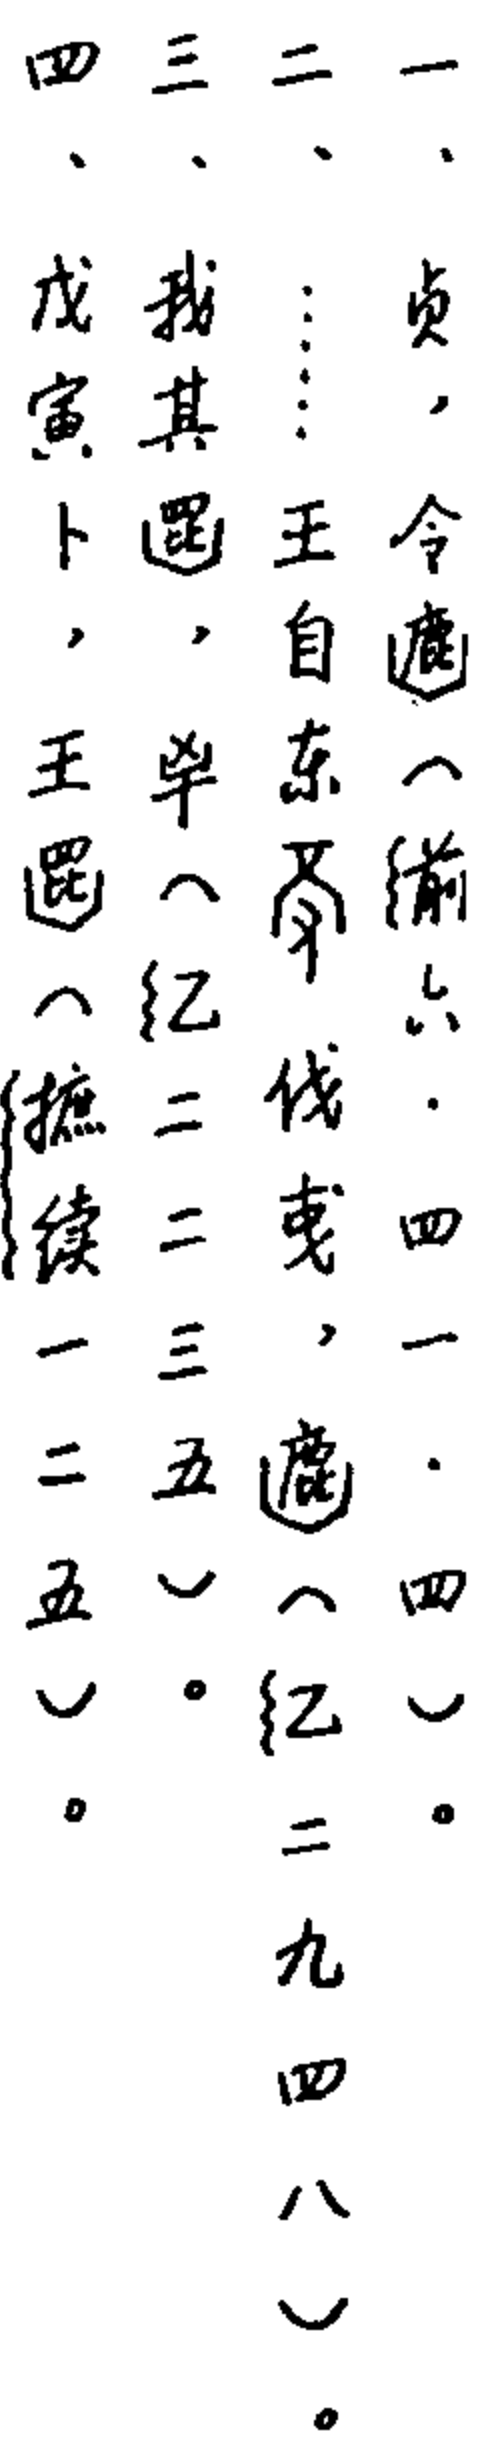 一、贞，令（前六·四一·四）。
二、……王自东伐，（乙二九四八）。
三、我其，（乙二二三五）。
四、戊寅卜，王（摭续一二五）。